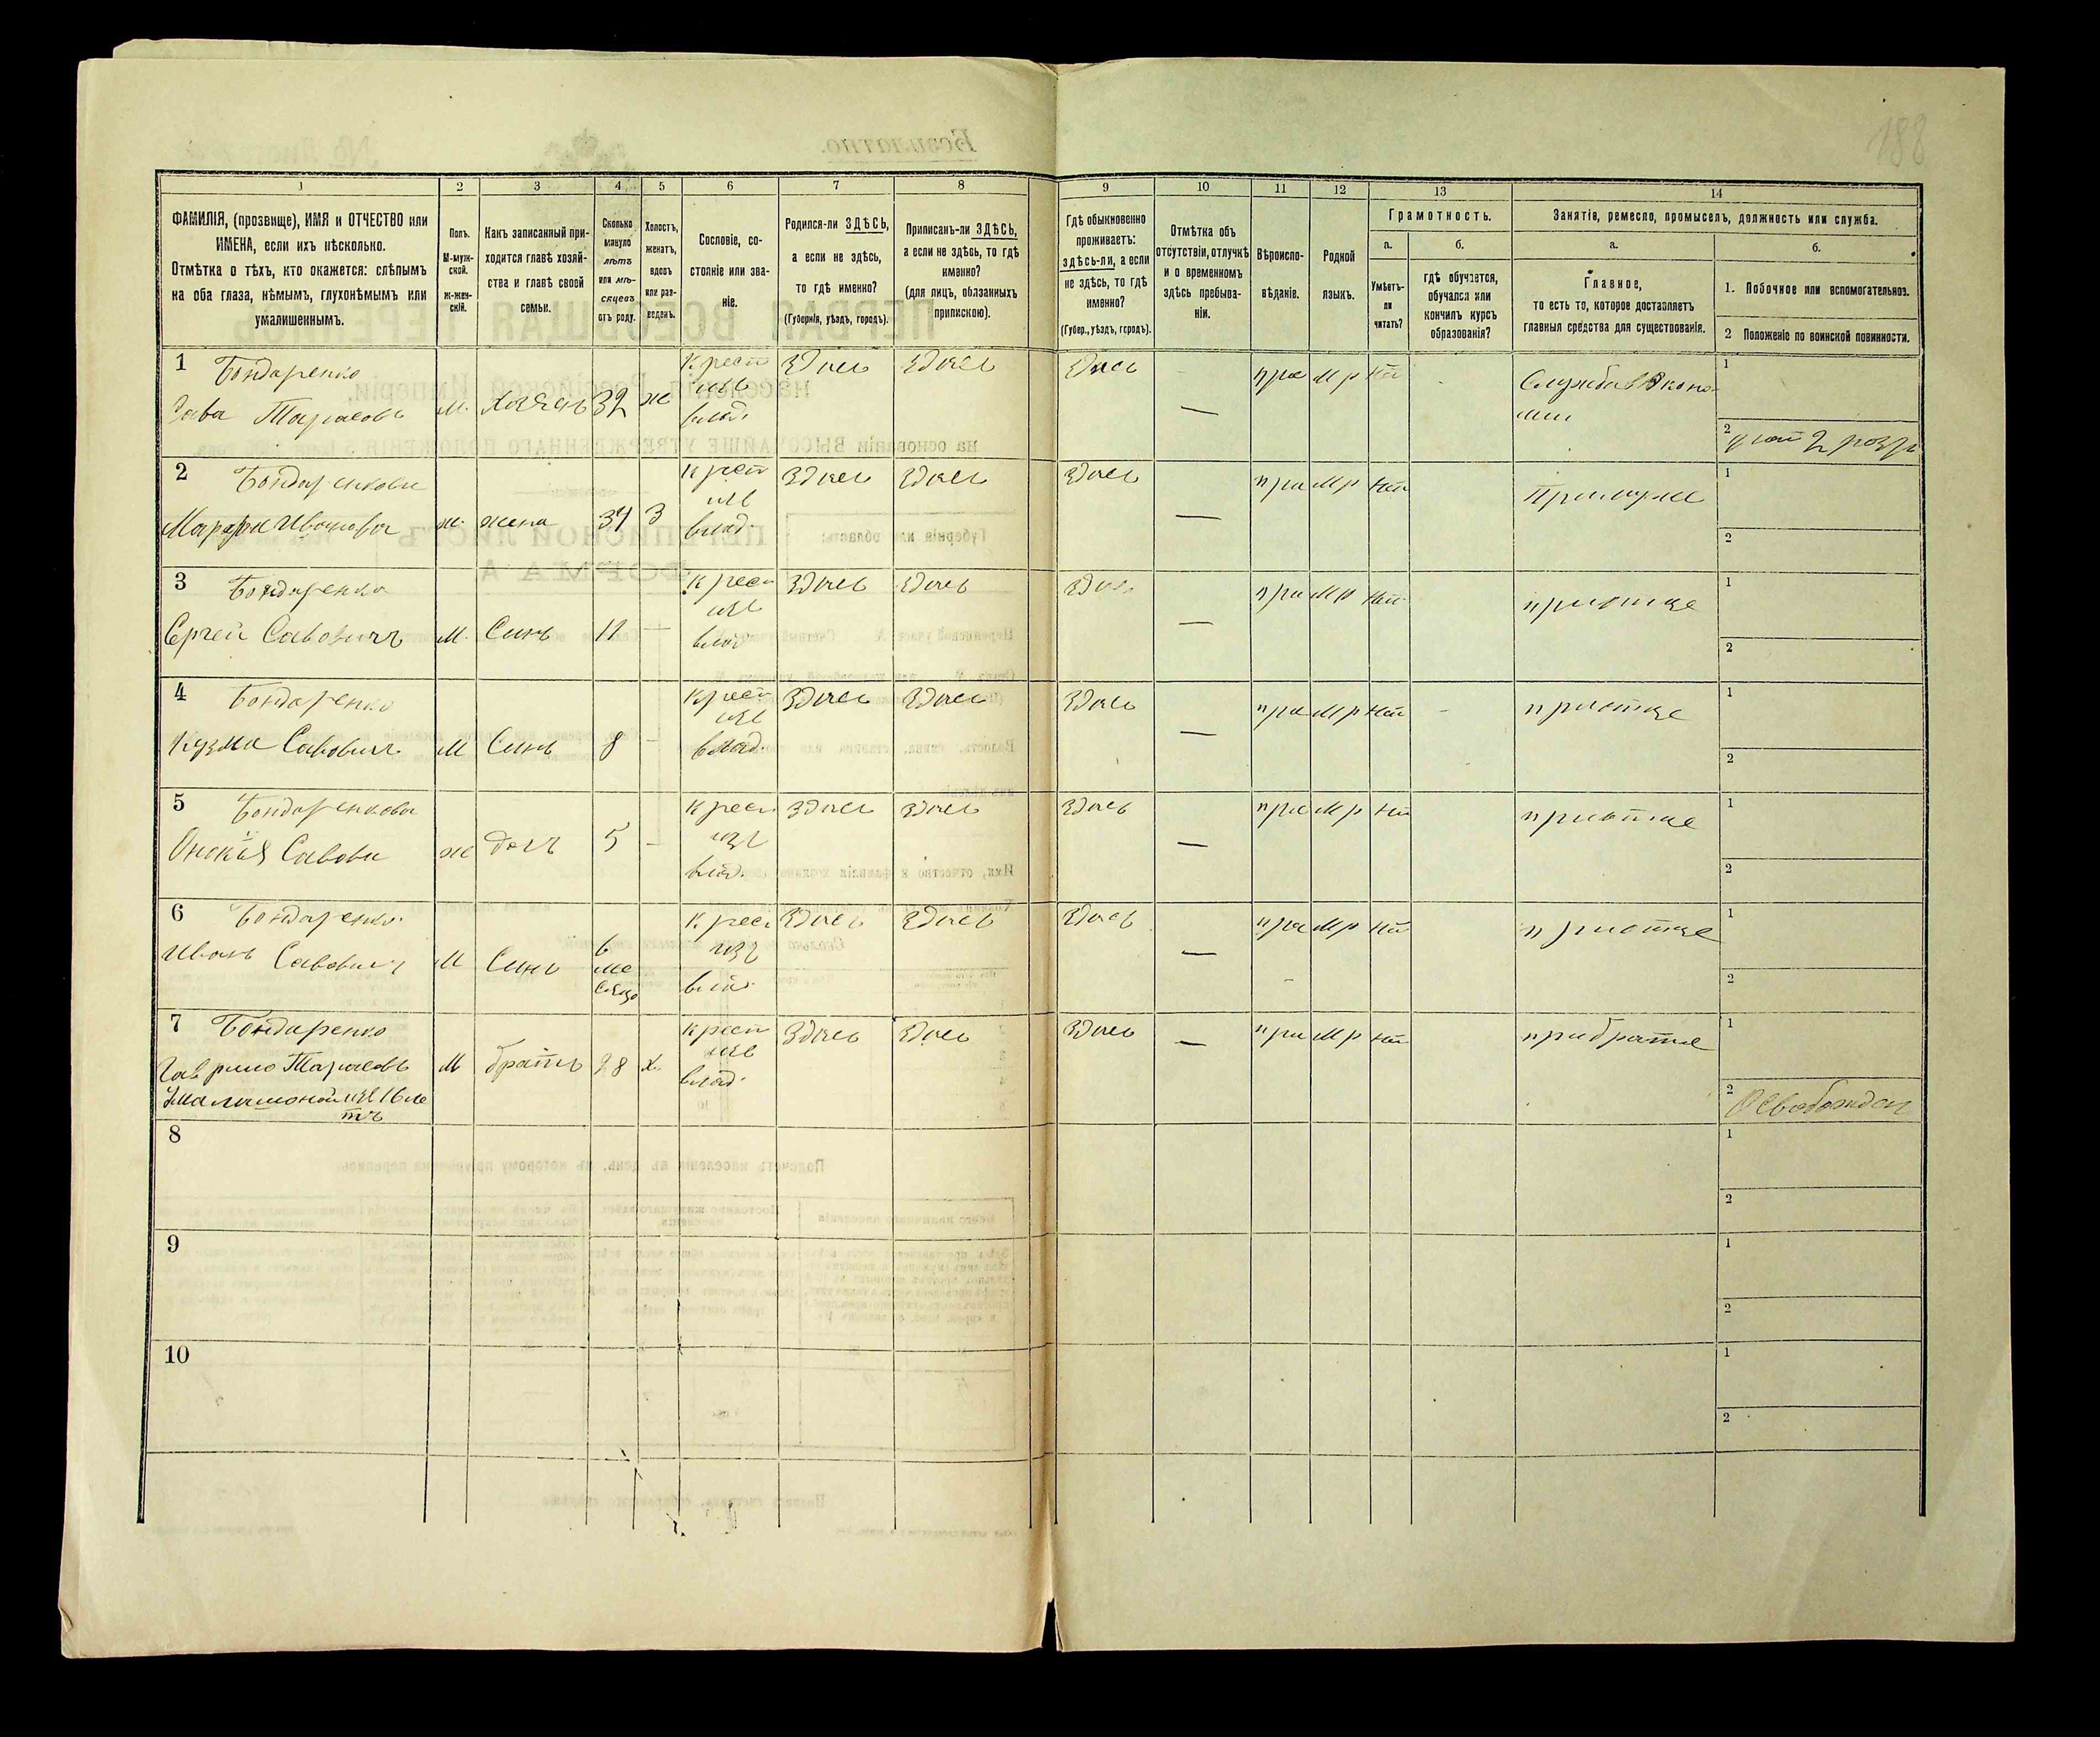 188
1 2 3 4 5 6 7 8 9 10 11 12 13 14
ФАМИЛІЯ, (прозвище), ИМЯ и ОТЧЕСТВО или
ИМЕНА, если ихъ нѣсколько.
Отмѣтка о тѣхъ, кто окажется: слѣпымъ
на оба глаза, нѣмымъ, глухонѣмымъ или
умалишеннымъ.
Полъ.
М-муж-
ской.
Ж-жен-
скій.
Какъ записанный при-
ходится главѣ хозяй-
ства и главѣ своей
семьи.
Сколько
минуло
лѣтъ
или мѣ-
сяцевъ
отъ роду.
Холостъ,
женатъ,
вдовъ
или раз-
веденъ.
Сословіе, со-
стояніе или зва-
ніе.
Родился-ли ЗДѢСЬ,
а если не здѣсь,
то гдѣ именно?
(Губернія, уѣздъ, городъ).
Приписанъ-ли ЗДѢСЬ,
а если не здѣсь, то гдѣ
именно?
(для лицъ, обязанныхъ
припискою).
Гдѣ обыкновенно
проживаетъ:
здѣсь-ли, а если
не здѣсь, то гдѣ
именно?
(Губер., уѣздъ, городъ).
Отмѣтка объ
отсутствіи, отлучкѣ
и о временномъ
здѣсь пребыва-
ніи.
Вѣроиспо-
вѣданіе.
Родной
языкъ.
Грамотность.
а.
Умѣетъ-
ли
читать?
б.
гдѣ обучается,
обучался или
кончилъ курсъ
образованія?
Занятія, ремесло, промыселъ, должность или служба.
а.
Главное,
то есть то, которое доставляетъ
главныя средства для существованія.
б.
1. Побочное или вспомогательное.
2 Положеніе по воинской повинности.
1 Бондаренко
Сава Тарасовъ
м. хазяінъ 32 ж
Крест
изъ
влад.
Здесь Здесь Здесь — пра мр
Служба в Эконо-
мии
1
2
2 Бондаренкова
Марфа Ивановна
ж. жена 34 З
Крест
изъ
влад.
Здесь Здесь Здесь — пра мр нет
При муже
1
2
3 Бондаренко
Сергей Савовичъ
м. Синъ 11 —
Крест
изъ
влад
Здесь Здесь — пра мр нет
при отце
1
2
4 Бондаренко
Кузма Савовичъ
м Синъ 8 -
Крест
изъ
влад.
Здесь Здесь Здесь — пра мр нет -
при отце
1
2
5 Бондаренкова
Савова
ж дочъ 5 -
Крест
изъ
влад.
Здесь Здесь Здесь — пра мр нет
при отце
1
2
6 Бондаренко
Иванъ Савовичъ
м Синъ
6
ме
сяцо
Крест
изъ
влад.
Здесь Здесь Здесь — пра мр нет
при отце
1
2
7 Бондаренко
Гаврило Тарасовъ
изъ 16 ле
тъ
м братъ 28 х.
Крест
изъ
влад.
Здесь Здесь Здесь — пра мр нет
при брате
1
2 Освобожден
8 1
2
9 1
2
10 1
2